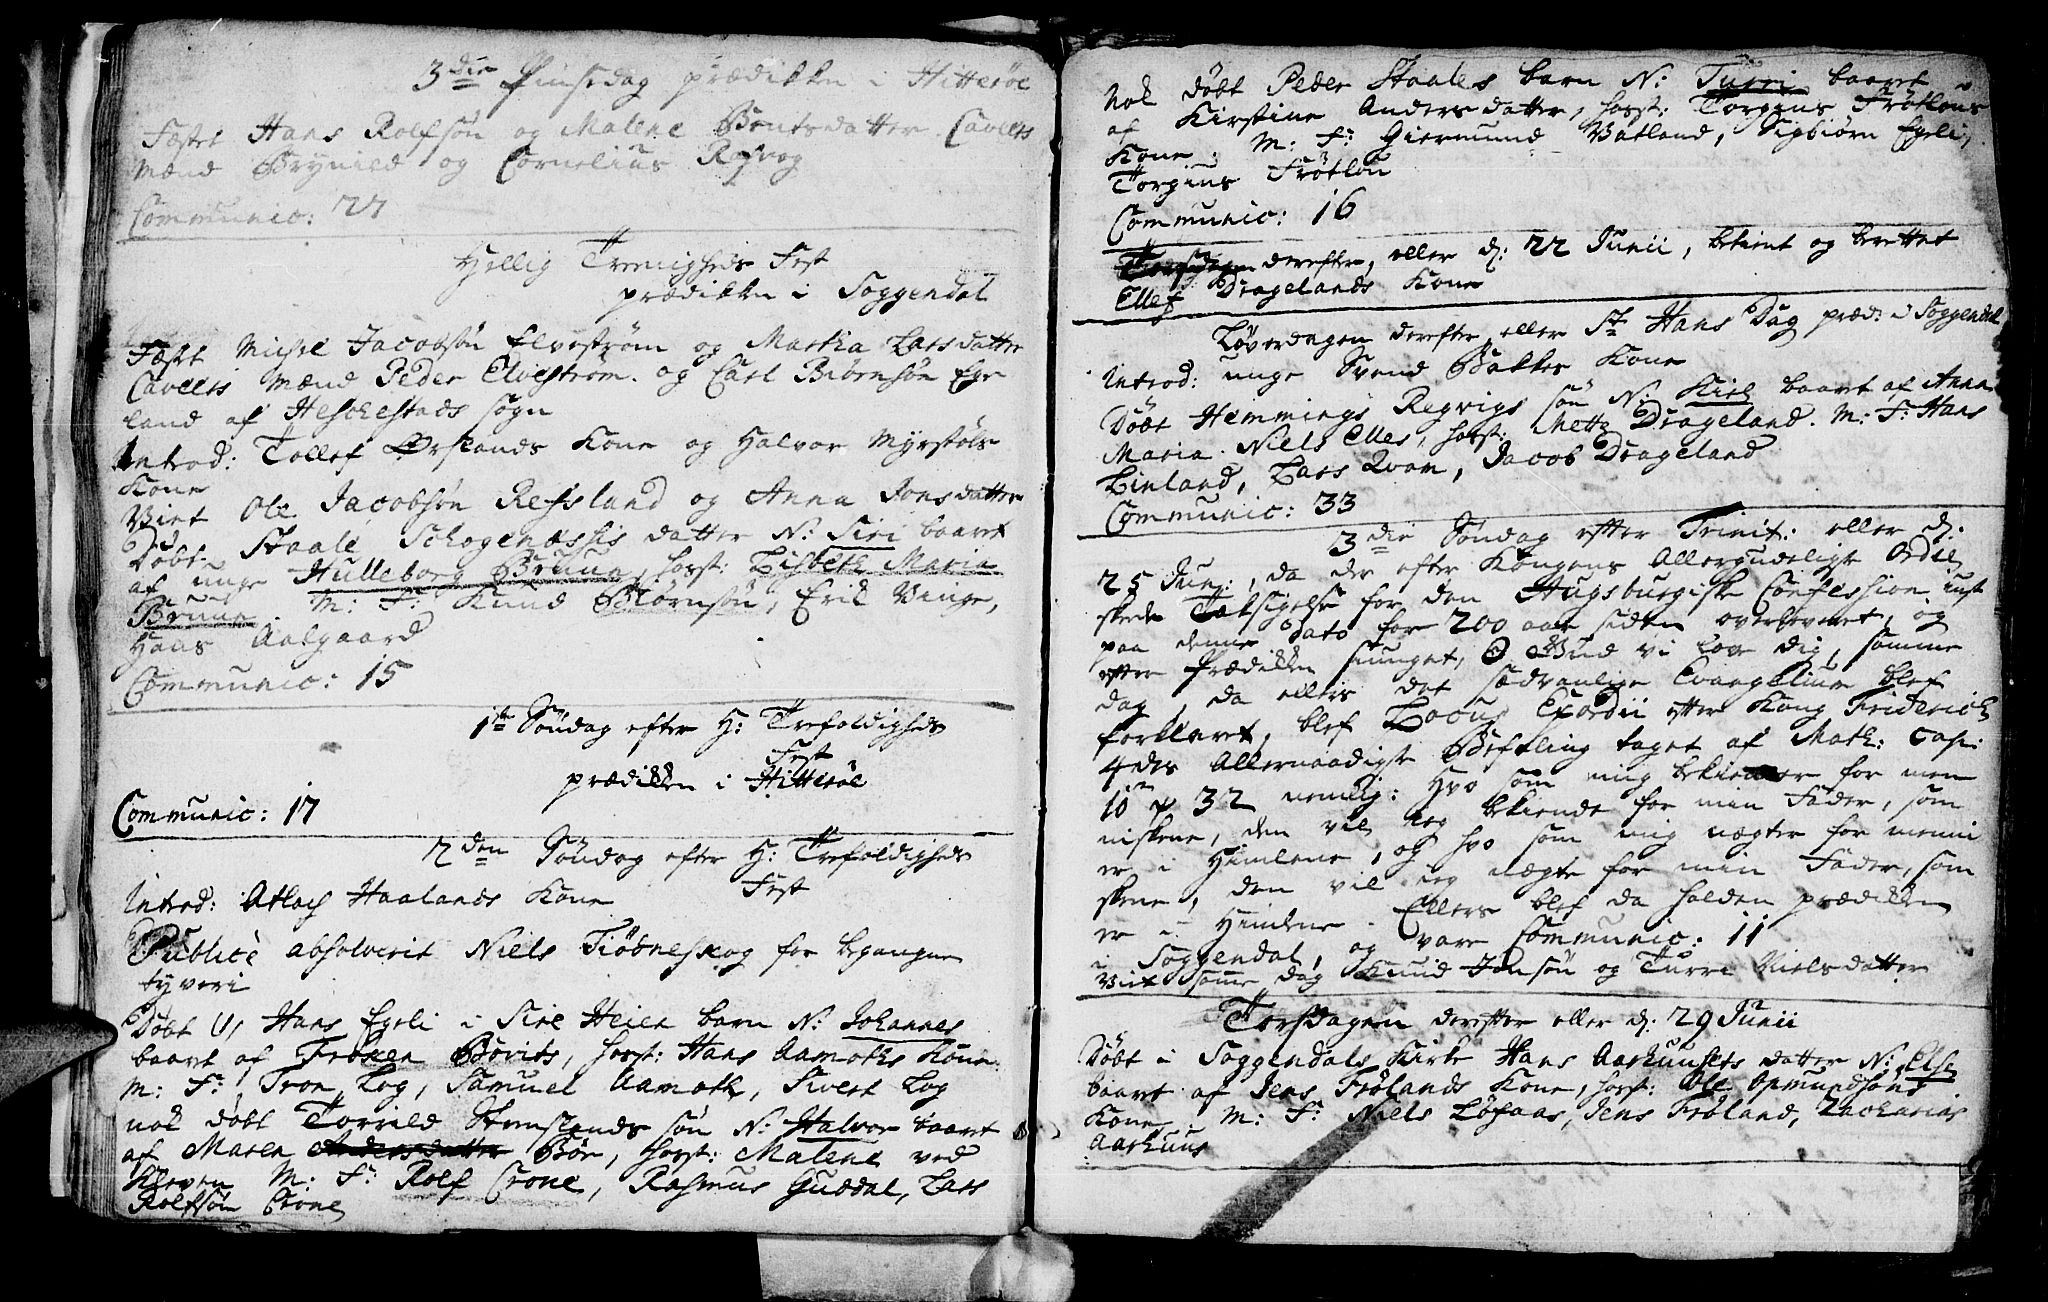 3die Pinsedag prædikken i Hitterøe
Fæstet Hans Rolfsøn og Malene Bentsdatter. Cavells
Mænd Brynild og Cornelius Rasvog
Communic: 27
Hellig Treenigheds Fest
prædikken i Soggendal
Fæstet Michel Jacobsøn Elvestrøm og Martha Larsdatter
Cavells mænd Peder Elvestrøm. og Carl Biørnsøn Ege
land af Heschestads sogn
Introd: Tollef Ørslands Kone og Halvor Myrstøls
Kone
Viet Ole Jacobsøn Refsland og Anna Jonsdatter
Døbt Staale Schogenæssis datter N: Siri baaret
af unge Hulleborg Bruun, hosst: Lisbeth Maria
Bruun. M: F: Knud Biørnsøn, Erik Vinge,
Hans Aalgaard
Communic: 15
1te Søndag efter H: Trefoldigheds
Fest
prædikken i Hitterøe
Communic: 17
2den Søndag efter H: Trefoldigheds
Fest
Introd: Atlach Haalands Kone
Publicè absolverit Niels Tiødneskog for begangne
tyveri
Døbt Hans Egeli i Sire Heien barn N: Johannes
baaret af Froken Bovits, hosst: Hans Aamoths Kone.
M: F: Tron Log, Samuel Aamoth, Sivert Log
nok døbt Torrild Stenslends søn N: Halvor baaret
af Maren Andersdatter Bøe, hosst: Malene ved
Kleven M: F: Rolf Crone, Rasmus Guddal, Lars
Rolfsøn Crone
Nok døbt Peder Staales barn N: Turri baaret
af Kirstine Andersdatter, hosst: Torgius Frøtløus
Kone. M: F: Giermund Vatland, Sigbiørn Egeli,
Torgius Frøtlöu
Communic: 16
Torsdagen derefter, eller d: 22 Junii, bekient og berettet
Ellef Dragelands Kone
Løverdagen derefter eller St Hans Dag præd: i Soggendal
Introd: unge Svend Bakkes Kone
Døbt Hemmings Regevigs søn N: Kiel baaret af Anna
Maria Niels Elles, hosst: Mette Drageland. M: F: Hans
Linland, Lars Qvam, Jacob Drageland
Communic: 33
3die Søndag efter Trinit: eller d:
25 Junj:, da der efter Kongens Allergudeligste Ordre
skede Taksigelse for den Augsburgiske Confession, just
paa denne dato for 200 aar siden overleveret, og
efter Prædikken siunget, O Gud vi love dig, samme
dag, da ellers det sædvanlige Evangelium blef
forklaret, blef Locus Exordii efter Kong Friderich
4des Allernaadigste Befalling taget af Math: Cap:
10 v 32 nemlig: Hvo som mig bekiender for men
niskene, den vil jeg bekiende for min Fader, som
er i Himlene, og hvo som mig nægter for menni
skene, den vil jeg nægte for min Fader, som
er i Himlene. Ellers blef da holden prædikken
i Soggendal, og vare Communic: 11
Viit samme dag Knud Jonsøn og Turri Nielsdatter
Torsdagen derefter eller d: 29 Junii
Døbt i Soggendals Kirke Hans Aarkuusets datter N: Else
baaret af Jens Frølands Kone, hosst: Ole Opmundsøns
Kone M: F: Niels Løfaas, Jens Frøland, Zacharias
Aarkuus